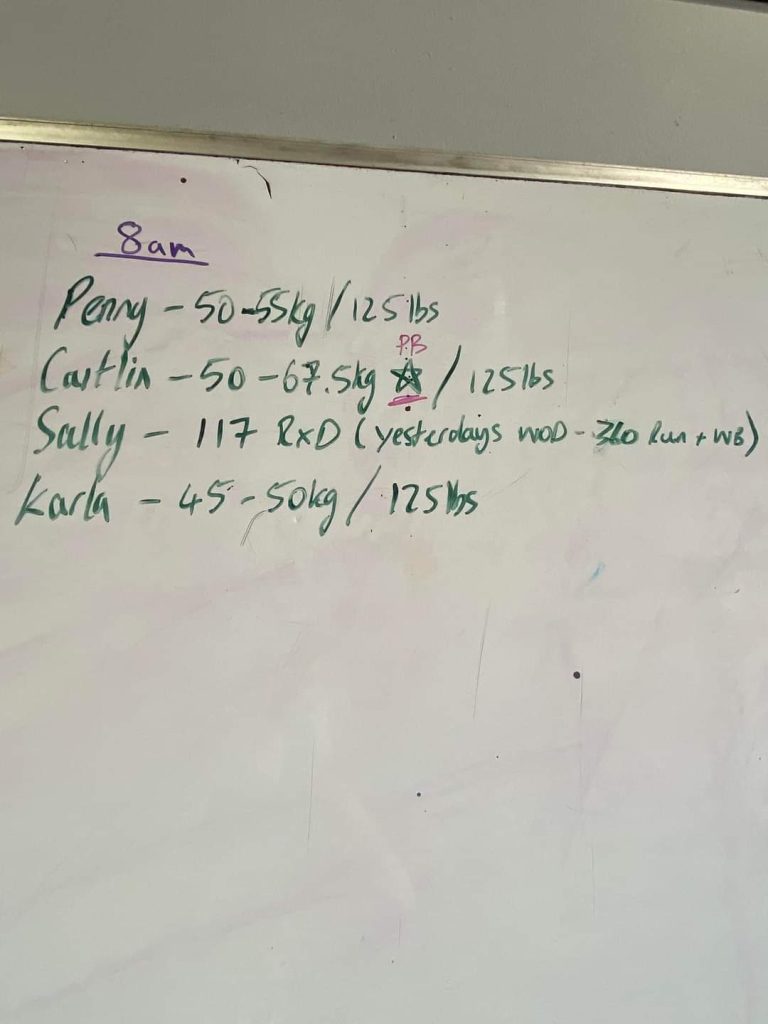 8am
Penny - 50-55kg / 125lbs
PB
Caitlin - 50 - 67.5kg ☆ / 125lbs
Sally - 117 RxD (yesterdays WOD - 360 Run + WB)
Karla - 45 - 50kg / 125lbs